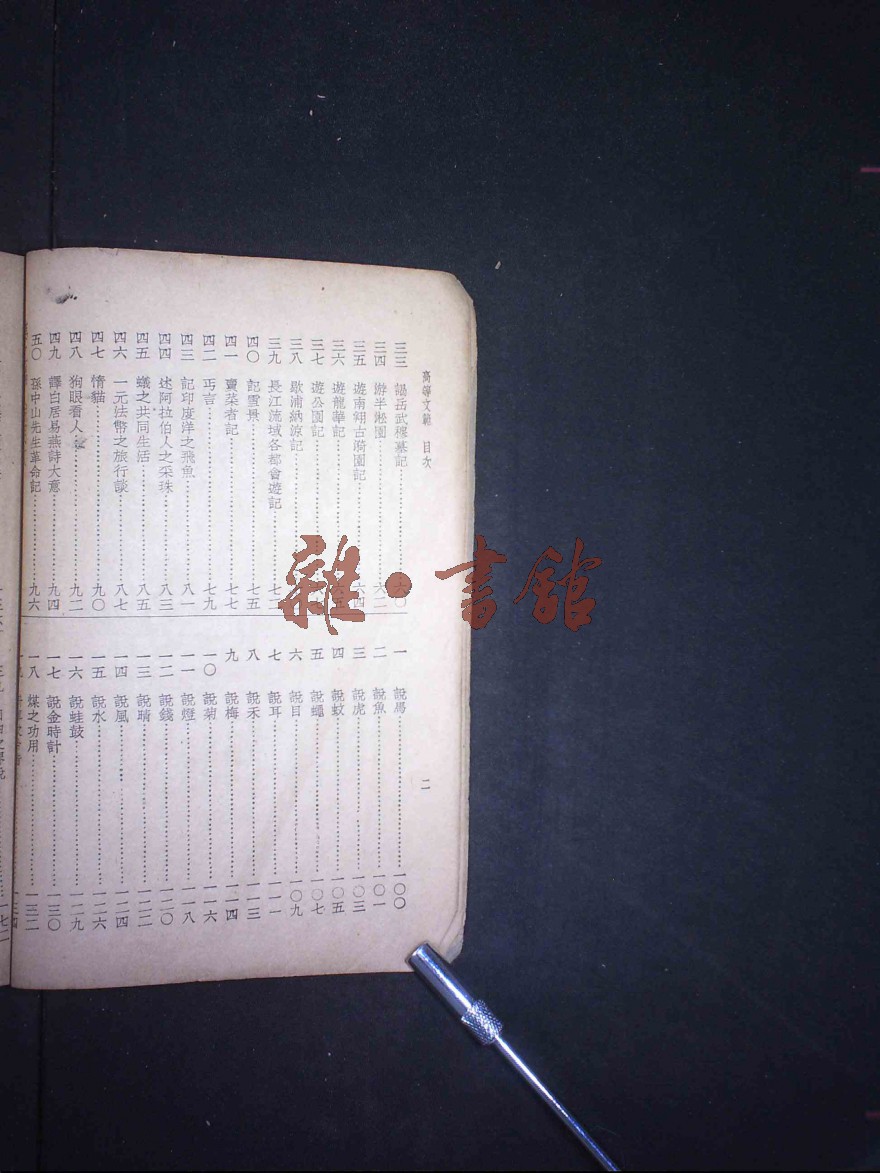 高等文範 目次
二
三三 謁岳武穆墓記 六〇
三四 游半淞園 六二
三五 遊南翔古漪園記 六四
三六 遊龍華記 六五
三七 遊公園記
三八 歇浦納涼記
三九 長江流域各都會遊記 七二
四〇 記雪景 七五
四一 賣菜者記 七七
四二 丐言 七九
四三 記印度洋之飛魚 八一
四四 述阿拉伯人之采珠 八三
四五 蟻之共同生活 八五
四六 一元法幣之旅行談 八七
四七 情貓 九〇
四八 狗眼看人 九二
四九 譯白居易燕詩大意 九四
五〇 孫中山先生革命記 九六
一 說馬 一〇〇
二 說魚 一〇一
三 說虎 一〇三
四 說蚊 一〇五
五 說蠅 一〇七
六 說目 一〇九
七 說耳 一一一
八 說禾 一一三
九 說梅 一一四
一〇 說菊 一一六
一一 說燈 一一八
一二 說錢 一二〇
一三 說晴 一二二
一四 說風 一二四
一五 說水 一二六
一六 說蛙鼓 一二九
一七 說金時計 一三〇
一八 煤之功用 一三二
雜·書館